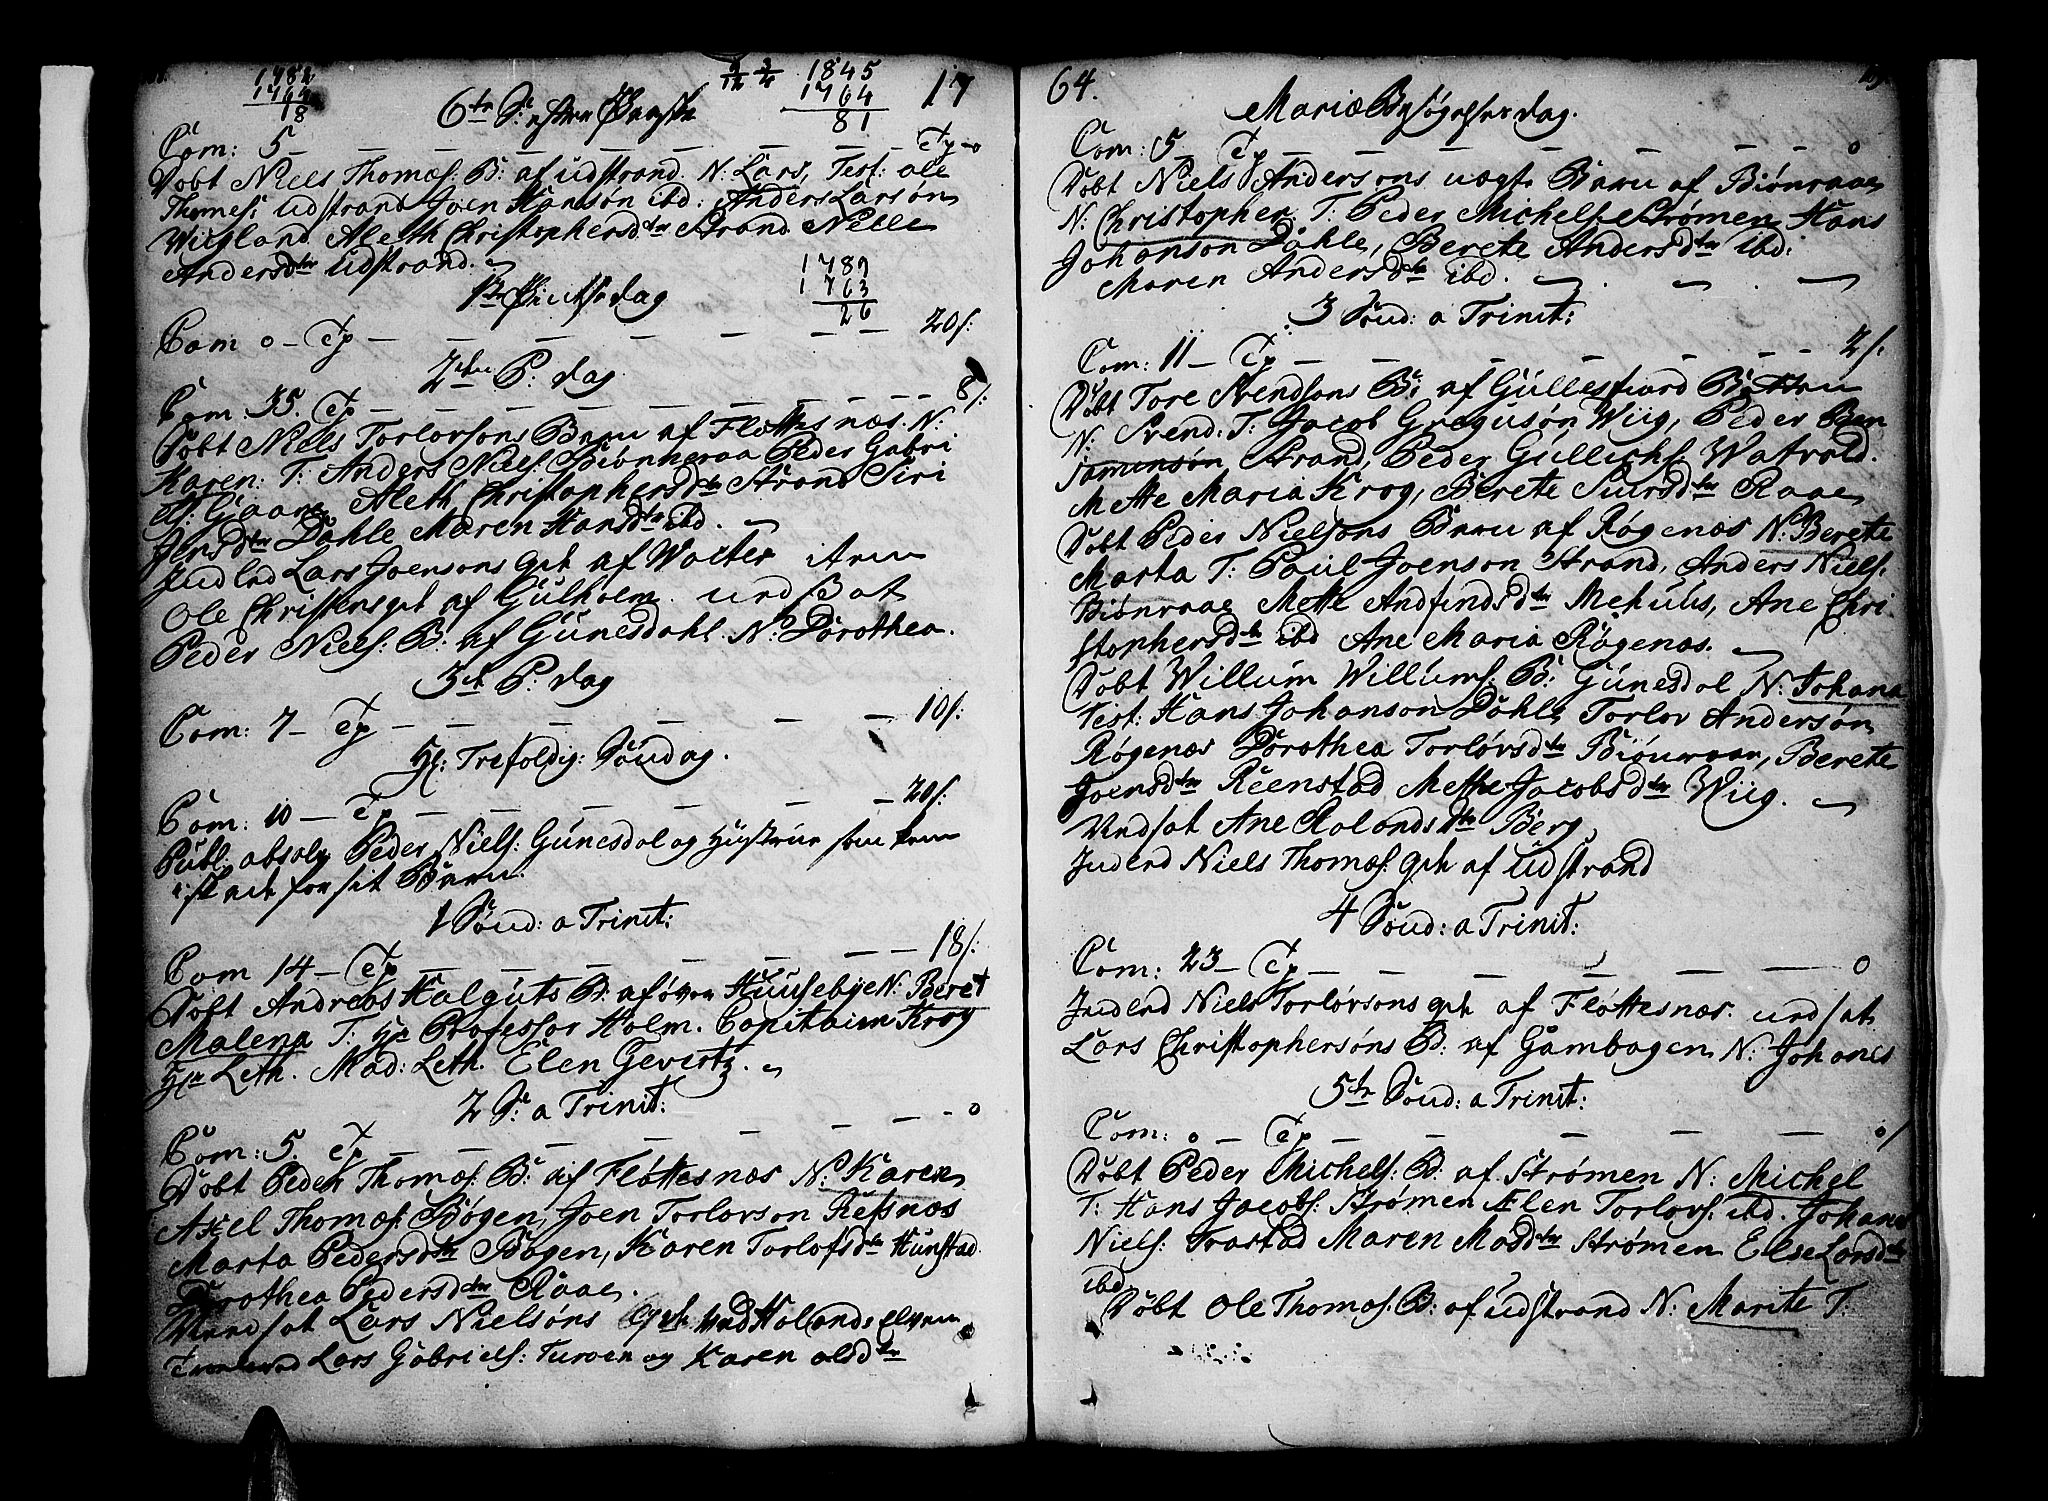 1782 1764 18
9/12 3/4
1845 1764 81
17
6te S: efter Paaske
Com: 5 — Tp — o
Döbt Niels Thomæs: B: af udstrand. N: Lars, Test: ole
Thomes: udstrand Joen Hansøn ibd: Anders Larsøn
Wiigland Aleth Christophersdtr Strand Nille
Andersdtr udstrand.
1789 1763 26
1te Pintsedag
Com o — Tp — 20/:
2den P: dag
Com: 35. Tp — 8/:
Döbt Niels Torlorsons Barn af Fløttesnæs. N:
Karen: T: Anders Niels: Biönheraa Peder Gabri
els: Gaare Aleth Christophersdtr Strand Siri
Jensdtr Dahle Maren Hansdtr ibd.
Indled Lars Joensons qvt af Walter item
Ole Christensqvt af Gulholm. undsat
Peder Niels: B: af Gunesdahl. N: Dorothea.
3die P: dag
Com: 7 — Tp — 10/:
Hl: Trefoldig: Söndag.
Com: 10 — Tp — 20/:
Publ: absolv Peder Niels: Gunesdal og Hustrue som kom
isteds for sit Barn.
1 Sönd: a Trinit:
Com 14 — Tp — 18/:
Döbt Andreas Halguts B: af över Huusebye N: Beret
Malena T: Hr Professor Holm. Capitaien Krog
Hr Leth. Mad: Leth. Elen Gevertz.
2 S: a Trinit:
Com: 5. Tp — o
Döbt Peder Thomæs: B: af Flöttesnæs N: Karen
Axel Thomæs: Bögen, Joen Torlorson Refsnæs
Marta Pedersdtr Bögen, Karen Torlofsdtr Hunstad.
Dorothea Pedersdtr Raae.
Undsat Lars Nielsöns qvt ved Holands elven
Troloved Lars Gabriels: Turoen og Karen olsdtr
64.
Mariæ Besögelses dag.
Com: 5 — Tp — o
Döbt Niels Andersons uægte Barn af Biönraae
N: Christopher. T: Peder Michels: Strømen Hans
Johanson Dahle, Berete Andersdtr ibd:
Maren Andersdtr ibd.
3 Sönd: a Trinit:
Com: 11 — Tp — 2/:
Döbt Tore Svendsons B: af Gullesfiord Botten
N: Svend: T: Jacob Gregusön Wiig, Peder Ben
jaminsön Strand, Peder Gullichs: Watvold.
Mette Maria Krog, Berete Siursdtr Raae
Döbt Peder Nielsons Barn af Rögenæs N: Berete
Marta T: Paul Joenson Strand, Anders Niels:
Biönraae Mette Andfindsdtr Mehuus, Ane Chri
stophersdtr ibd Ane Maria Rögenæs.
Döbt Willum Willums: B: Gunesdal N: Johana
Test: Hans Johanson Dahle Torlov Andersön
Rögenæs Dorothea Torlövsdtr Biönraae, Berete
Joensdtr Reenstad Mette Jacobsdtr Wiig.
Undsat Ane Rolandsdtr Berg
Inded Niels Thomæs: qvt af udstrand
4 Sönd: a Trinit:
Com: 23 — Tp — o
Inded Niels Torlövsons qvt af Flöttesnæs. undsat
Lars Christophersöns B: af Gambogen N: Johanes
5te Sönd: a Trinit:
Com: o — Tp — o/
Döbt Peder Michels: B: af Strømen N: Michel
T: Hans Jacobs: Strømen Elen Torlovs: ibd. Johanes
Niels: Trastad Maren Madsdtr Strømen Else Larsdtr
ibd
Döbt Ole Thomæs: B: af udstrand N: Marite T: